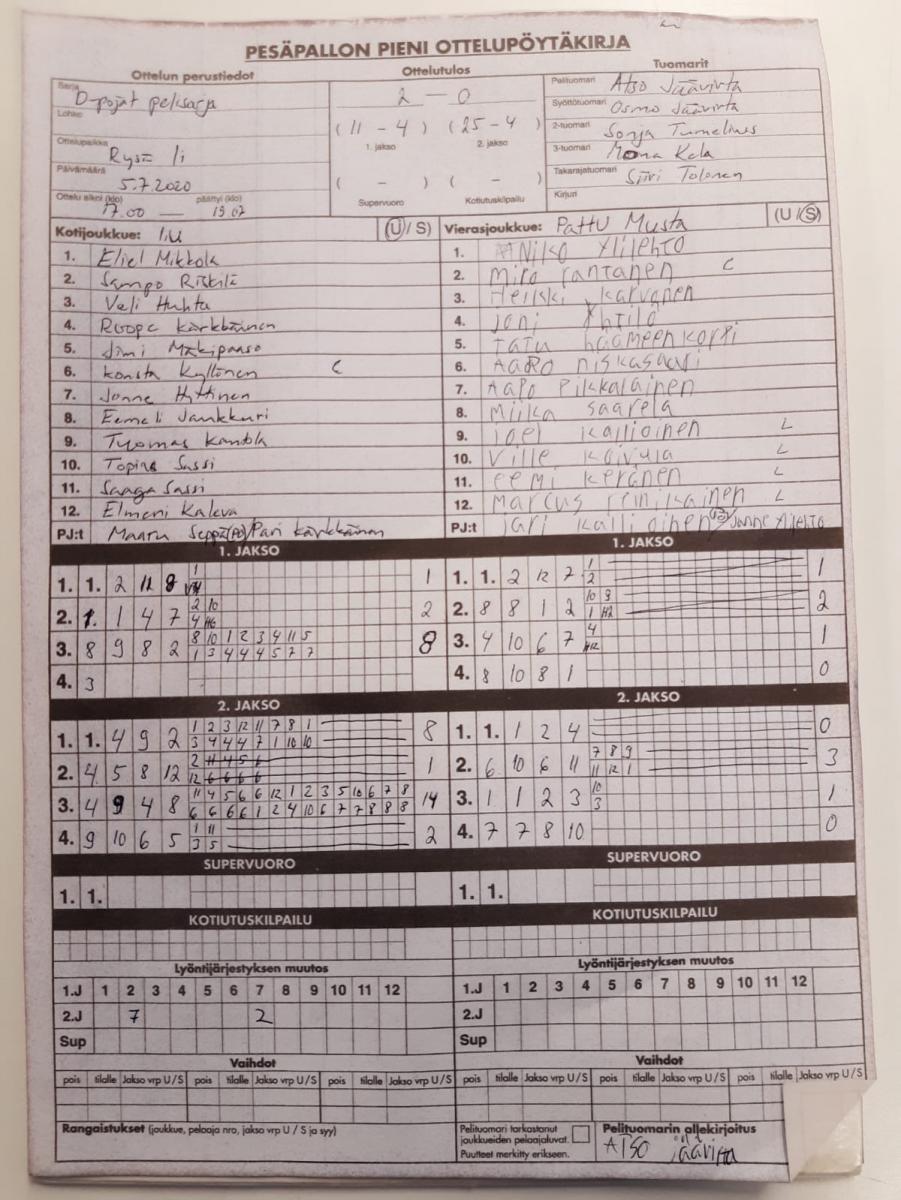 PESÄPALLON PIENI OTTELUPÖYTÄKIRJA
Ottelun perustiedot
Sarja D-pojat
Lohko
Ottelupaikka Rysä Ii
Päivämäärä 5.7.2020
Ottelu alkoi (klo) 17.00 — päättyi (klo) 19.07
Ottelutulos
2 — 0
(11 - 4) (25 - 4)
1. jakso 2. jakso
( - ) ( - )
Supervuoro Kotiutuskilpailu
Tuomarit
Pelituomari Atso Jäävirta
Syöttötuomari Osmo Jäävirta
2-tuomari Sonja Tumelius
3-tuomari Mona Kela
Takarajatuomari Siiri Tolonen
Kirjuri
Kotijoukkue: IiU (U/S)
1. Eliel Mikkola
2. Sampo Riskilä
3. Veli Huhta
4. Roope Kärkkäinen
5. Jimi
6. Konsta Kyllönen C
7. Jonne Hyttinen
8. Eemeli Jaukkuri
9. Tuomas
10. Topias Sassi
11. Saaga Sassi
12. Elmeri Kaleva
PJ:t
Vierasjoukkue: Pattu Musta (U/S)
1. Niko Ylilehto
2. Miro rantanen C
3. Heikki karvonen
4. Joni
5. Tatu hämeenkorpi
6. AaRo niskasaari
7. AaPo Pikkalainen
8. Miika saarela
9. Joel kallioinen L
10. Ville koivula L
11. eemi keränen L
12. Marcus L
PJ:t Jari kallioinen Janne Ylilehto
1. JAKSO
1. 1. 2 11 8 1
1
2. 1. 1 4 7 2 10 2
4 H6
3. 8 9 8 2 8 10 1 2 3 4 11 5 8
1 3 4 4 4 5 7 7
4. 3
1. JAKSO
1. 1. 2 12 7 1 1
2
2. 8 8 1 2 10 9 2
1 H2
3. 4 10 6 7 4 1
H12
4. 8 10 8 1 0
2. JAKSO
1. 1. 4 9 2 1 2 3 12 11 7 8 1 8
3 4 4 4 7 1 10 10
2. 4 5 8 12 2 1
12
3. 4 9 4 8 11 4 5 6 6 12 1 2 3 5 10 6 7 8 14
6 6 6 6 1 2 4 10 6 7 7 8 8 8
4. 9 10 6 5 1 11 2
3 5
2. JAKSO
1. 1. 1 2 4 0
2. 6 10 6 11 7 8 9 3
11 12 1
3. 1 1 2 3 10 1
3
4. 7 7 8 10 0
SUPERVUORO
1. 1.
SUPERVUORO
1. 1.
KOTIUTUSKILPAILU
KOTIUTUSKILPAILU
Lyöntijärjestyksen muutos
1.J 1 2 3 4 5 6 7 8 9 10 11 12
2.J 7 2
Sup
Lyöntijärjestyksen muutos
1.J 1 2 3 4 5 6 7 8 9 10 11 12
2.J
Sup
Vaihdot
pois tilalle Jakso vrp U/S pois tilalle Jakso vrp U/S pois tilalle Jakso vrp U/S
Vaihdot
pois tilalle Jakso vrp U/S pois tilalle Jakso vrp U/S pois tilalle Jakso vrp U/S
Rangaistukset (joukkue, pelaaja nro, jakso vrp U / S ja syy)
Pelituomari tarkastanut
joukkueiden pelaajaluvat.
Puutteet merkitty erikseen.
Pelituomarin allekirjoitus
ATSO Jäävirta